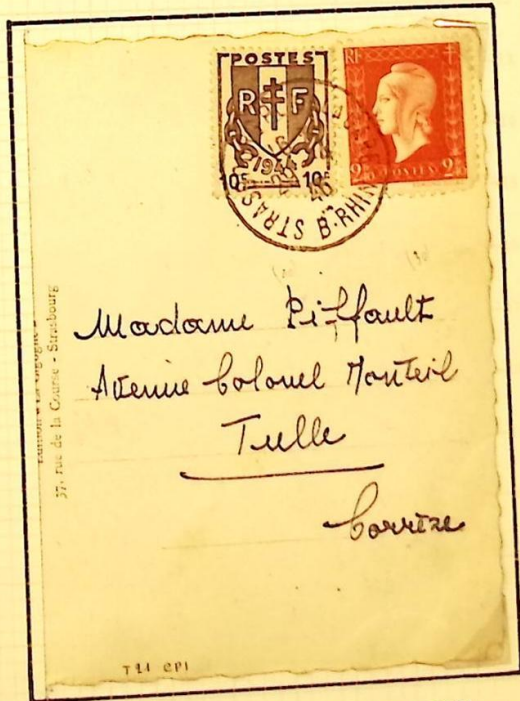 POSTES
R F
1944
10c 10c
RF
2F POSTES 2F
STRASBOURG
B. RHIN
46
Madame Piffault
Avenue Colonel Monteil
Tulle
Corrèze
37, rue de la Course - Strasbourg
T11 CP1